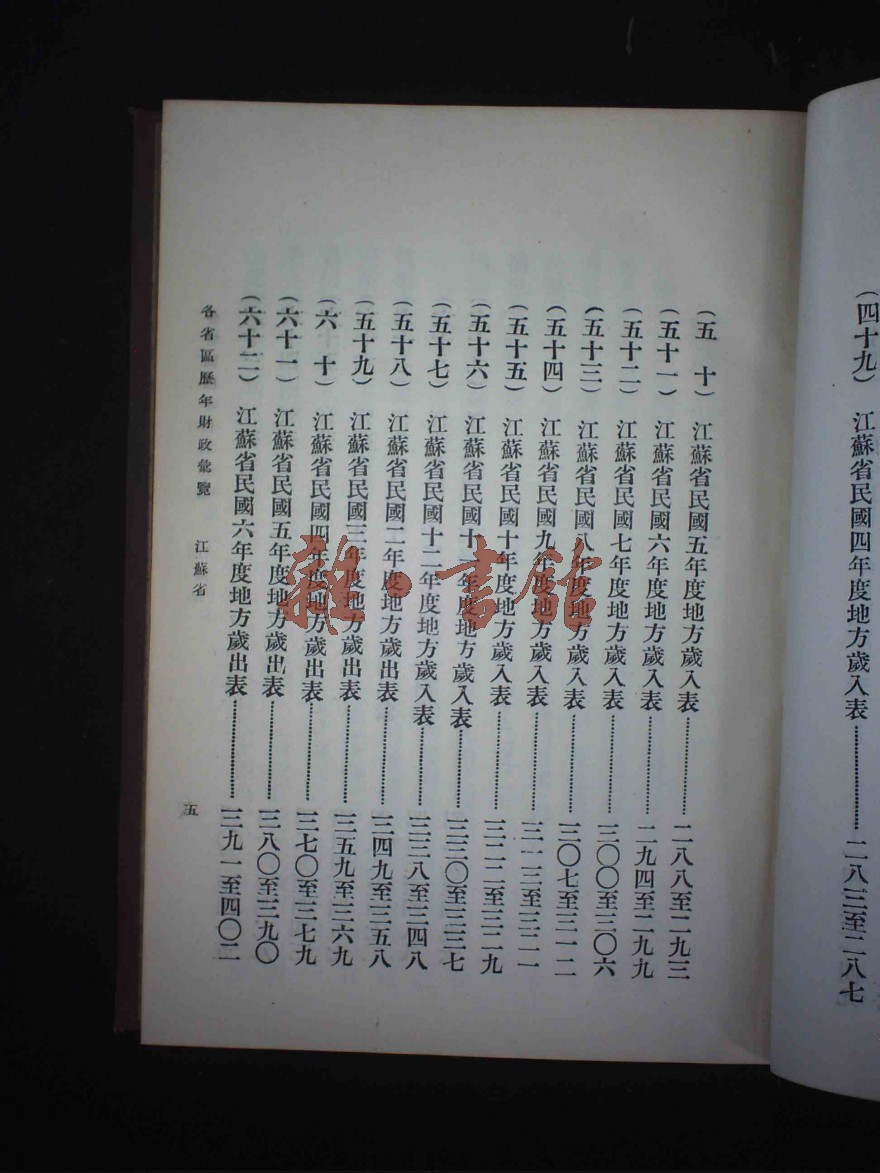 (四十九) 江蘇省民國四年度地方歲入表………二八三至二八七
(五 十) 江蘇省民國五年度地方歲入表………二八八至二九三
(五十一) 江蘇省民國六年度地方歲入表………二九四至二九九
(五十二) 江蘇省民國七年度地方歲入表………三〇〇至三〇六
(五十三) 江蘇省民國八年度地方歲入表………三〇七至三一二
(五十四) 江蘇省民國九年度地方歲入表………三一三至三二一
(五十五) 江蘇省民國十年度地方歲入表………三二二至三二九
(五十六) 江蘇省民國十一年度地方歲入表………三三〇至三三七
(五十七) 江蘇省民國十二年度地方歲入表………三三八至三四八
(五十八) 江蘇省民國二年度地方歲出表………三四九至三五八
(五十九) 江蘇省民國三年度地方歲出表………三五九至三六九
(六 十) 江蘇省民國四年度地方歲出表………三七〇至三七九
(六十一) 江蘇省民國五年度地方歲出表………三八〇至三九〇
(六十二) 江蘇省民國六年度地方歲出表………三九一至四〇二
各省區歷年財政彙覽 江蘇省 五
雜·書館